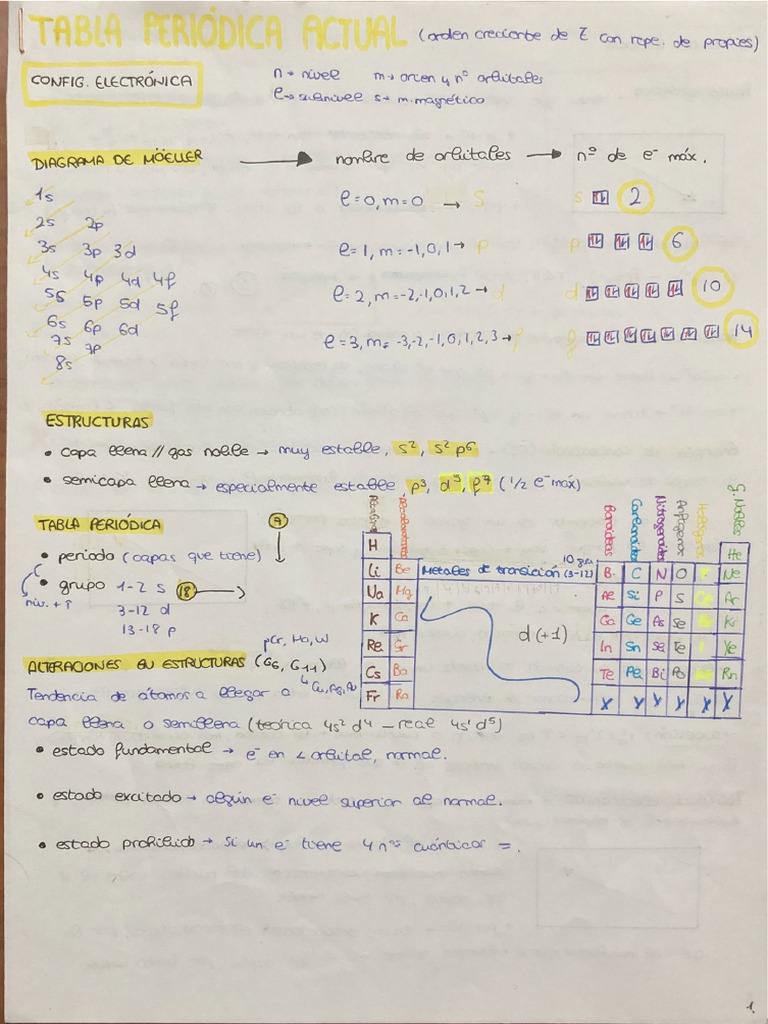 TABLA PERIÓDICA ACTUAL (orden creciente de Z con repe. de propies)
CONFIG. ELECTRÓNICA
n → nivel m → orien y nº orbitales
l → subnivel s → m. magnético
DIAGRAMA DE MÖELLER → nombre de orbitales → nº de e⁻ máx.
1s
2s 2p
3s 3p 3d
4s 4p 4d 4f
5s 5p 5d 5f
6s 6p 6d
7s 7p
8s
l = 0, m = 0 → s
l = 1, m = -1, 0, 1 → p
l = 2, m = -2, -1, 0, 1, 2 → d
l = 3, m = -3, -2, -1, 0, 1, 2, 3 → f
s 2
p 6
d 10
f 14
ESTRUCTURAS
• capa llena // gas noble → muy estable, s², s² p⁶
• semicapa llena → especialmente estable, p³, d⁵, f⁷ (1/2 e⁻ máx)
TABLA PERIÓDICA
• periodo (capas que tiene) 7
• grupo 1-2 s 18
niv. + ↑
3-12 d
13-18 p
Boroideos Carbonoideos Nitrogenoideos Anfígenos Halógenos G. Nobles
H He
Li Be Metales de transición (3-12) B C N O F Ne
Na Mg Ae Si P S Ar
K Ca d (+1) Ga Ge As Se Kr
Sr In Sn Te I Xe
Cs Ba Bi Po Rn
Fr Ra X X X X X X
ALTERACIONES EN ESTRUCTURAS (G6, G11)
↳ Cu, Ag, Au
Tendencia de átomos a llegar a
capa llena o semillena (teórica 4s² d⁴ – real 4s¹ d⁵)
• estado fundamental → e⁻ en < orbital, normal.
• estado excitado → algún e⁻ nivel superior al normal.
• estado prohibido → si un e⁻ tiene 4 nºs cuánticos =.
1.